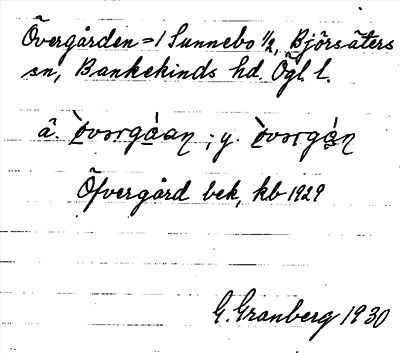 Övergården = 1 Sunnebo 1/2, Björsäters
sn, Bankekinds hd. Ögl. l.
Öfvergård bek, kb 1929
G. Granberg 1930